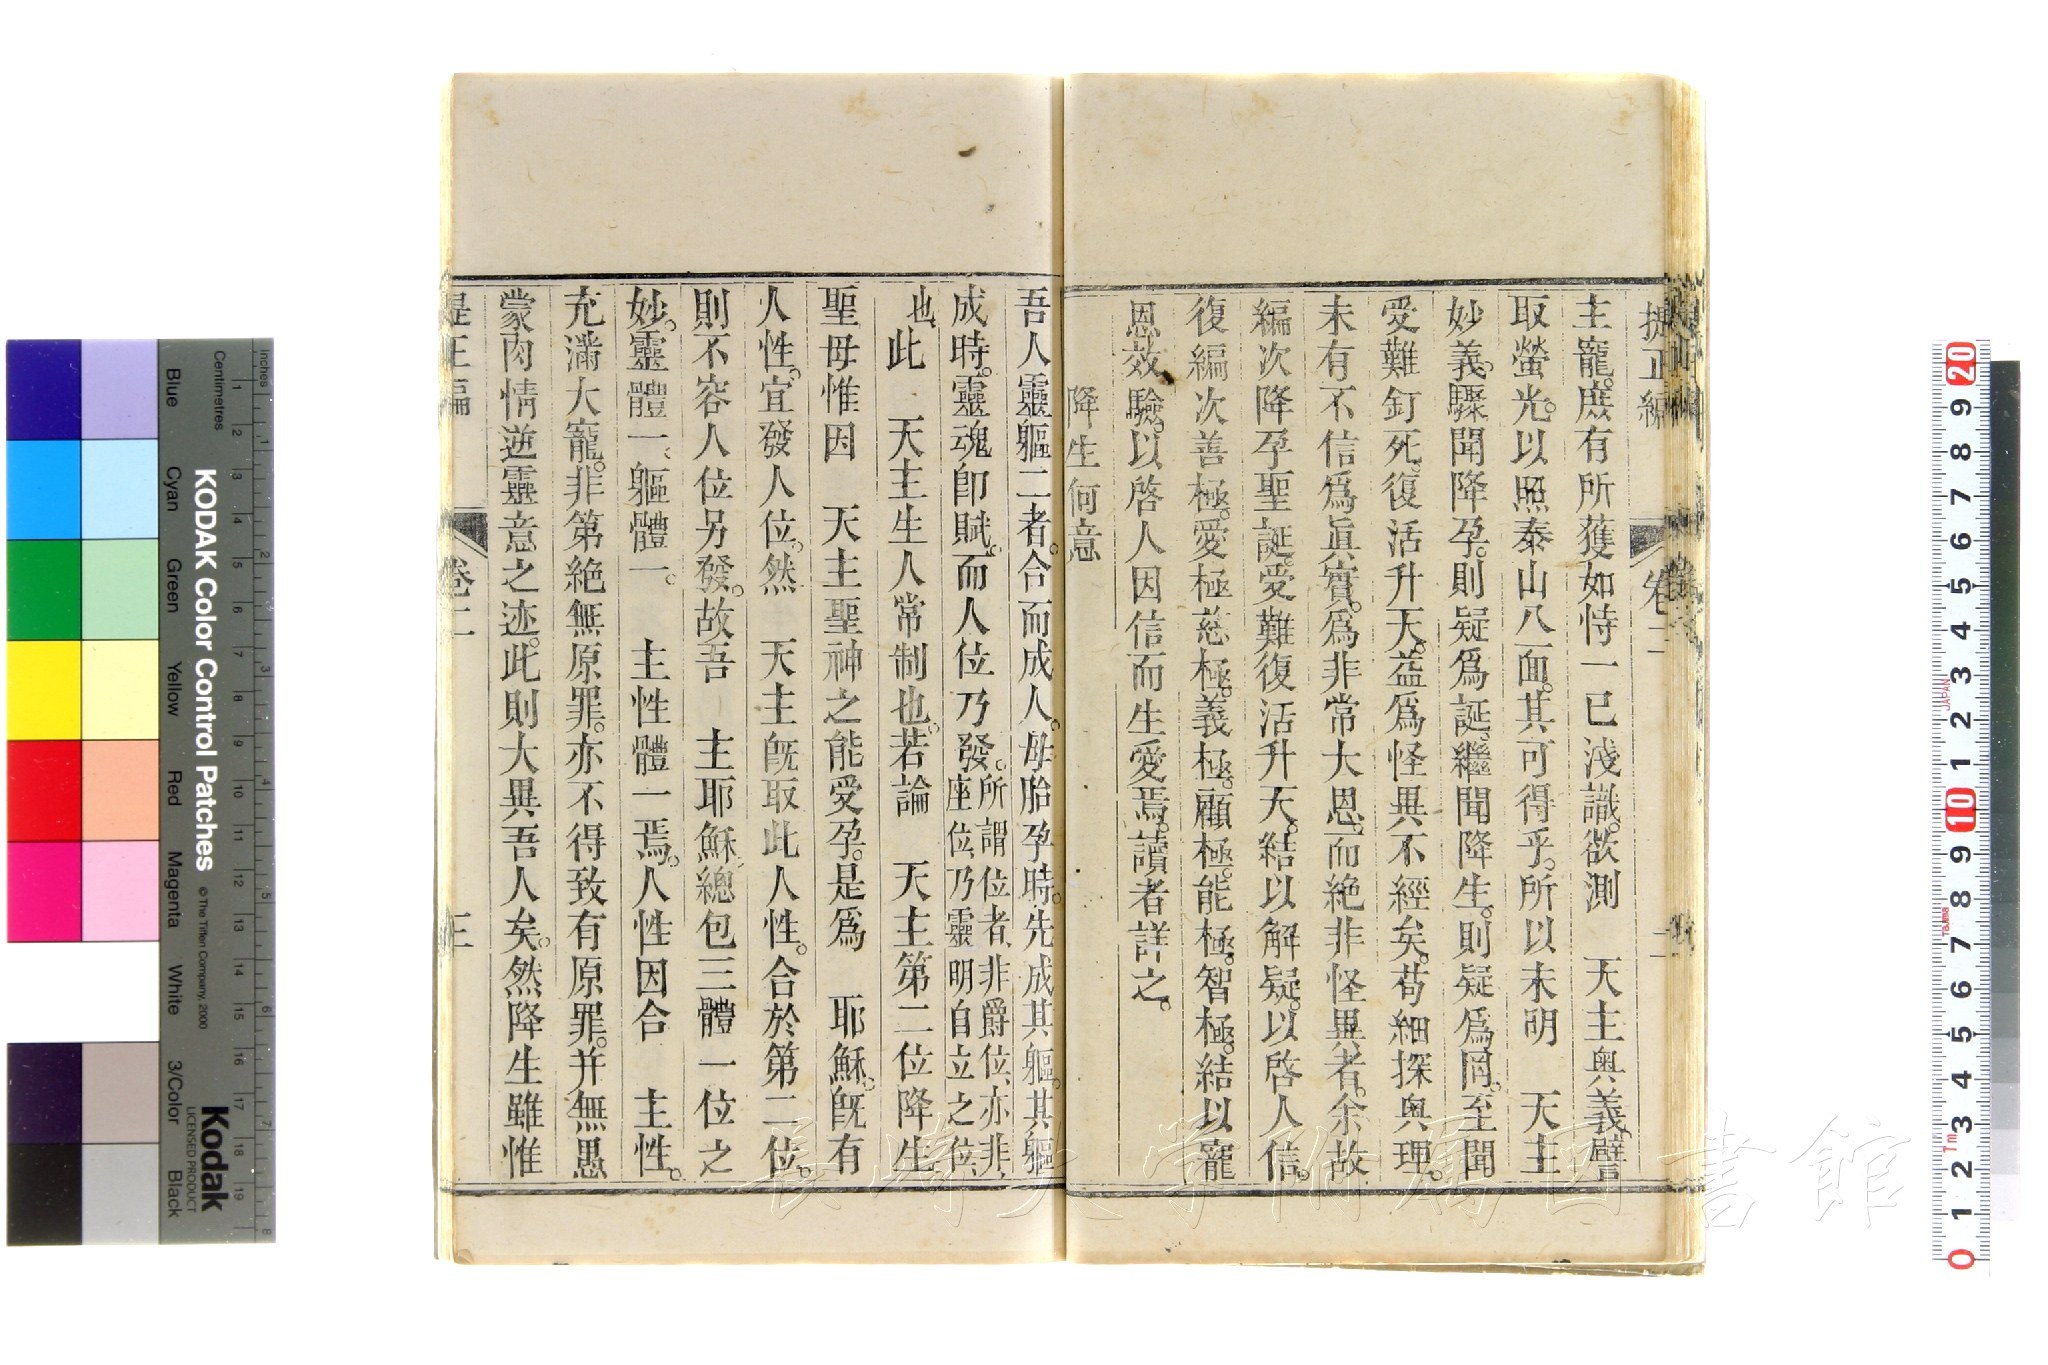 提正編 卷二
主寵。庶有所獲。如恃一已淺識。欲測 天主奥義。譬
取螢光。以照泰山八面。其可得乎。所以未明 天主
妙義。驟聞降孕。則疑爲誕。繼聞降生。則疑爲罔。至聞
受難釘死。復活升天。益爲怪異不經矣。苟細探奥理。
未有不信爲眞實。爲非常大恩。而絶非怪異者。余故
編次降孕聖誕。受難復活升天。結以解疑。以啓人信。
復編次善極。愛極。慈極。義極。顧極。能極。智極。結以寵
恩效驗。以啓人因信而生愛焉。讀者詳之。
降生何意
吾人靈軀二者。合而成人。母胎孕時。先成其軀。其軀
成時。靈魂卽賦。而人位乃發。所謂位者、非爵位、亦非、座位、乃靈明自立之位、
也、此 天主生人常制也。若論 天主第二位降生、
聖母惟因 天主聖神之能受孕。是爲 耶穌。旣有
人性。宜發人位。然 天主旣取此人性。合於第二位。
則不容人位另發。故吾 主耶穌。總包三體一位之
妙。靈體一、軀體一。 主性體一焉。人性因合 主性。
充滿大寵。非第絶無原罪。亦不得致有原罪。并無愚
蒙肉情逆靈意之迹。此則大異吾人矣。然降生雖惟
提正編 卷二 三
長崎大学附属図書館
KODAK Color Control Patches
© The Tiffen Company, 2000
Kodak
LICENSED PRODUCT
Inches
Centimetres
Blue
Cyan
Green
Yellow
Red
Magenta
White
3/Color
Black
JAPAN